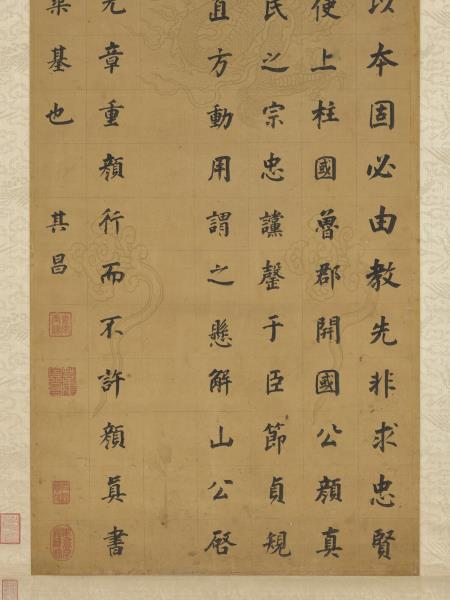 以本固必由教先非求忠賢
使上柱國魯郡開國公顏真
氏之宗忠讜罄于臣節貞規
直方動用謂之懸解山公啓
元章重顏行而不許顏眞書
築基也 其昌